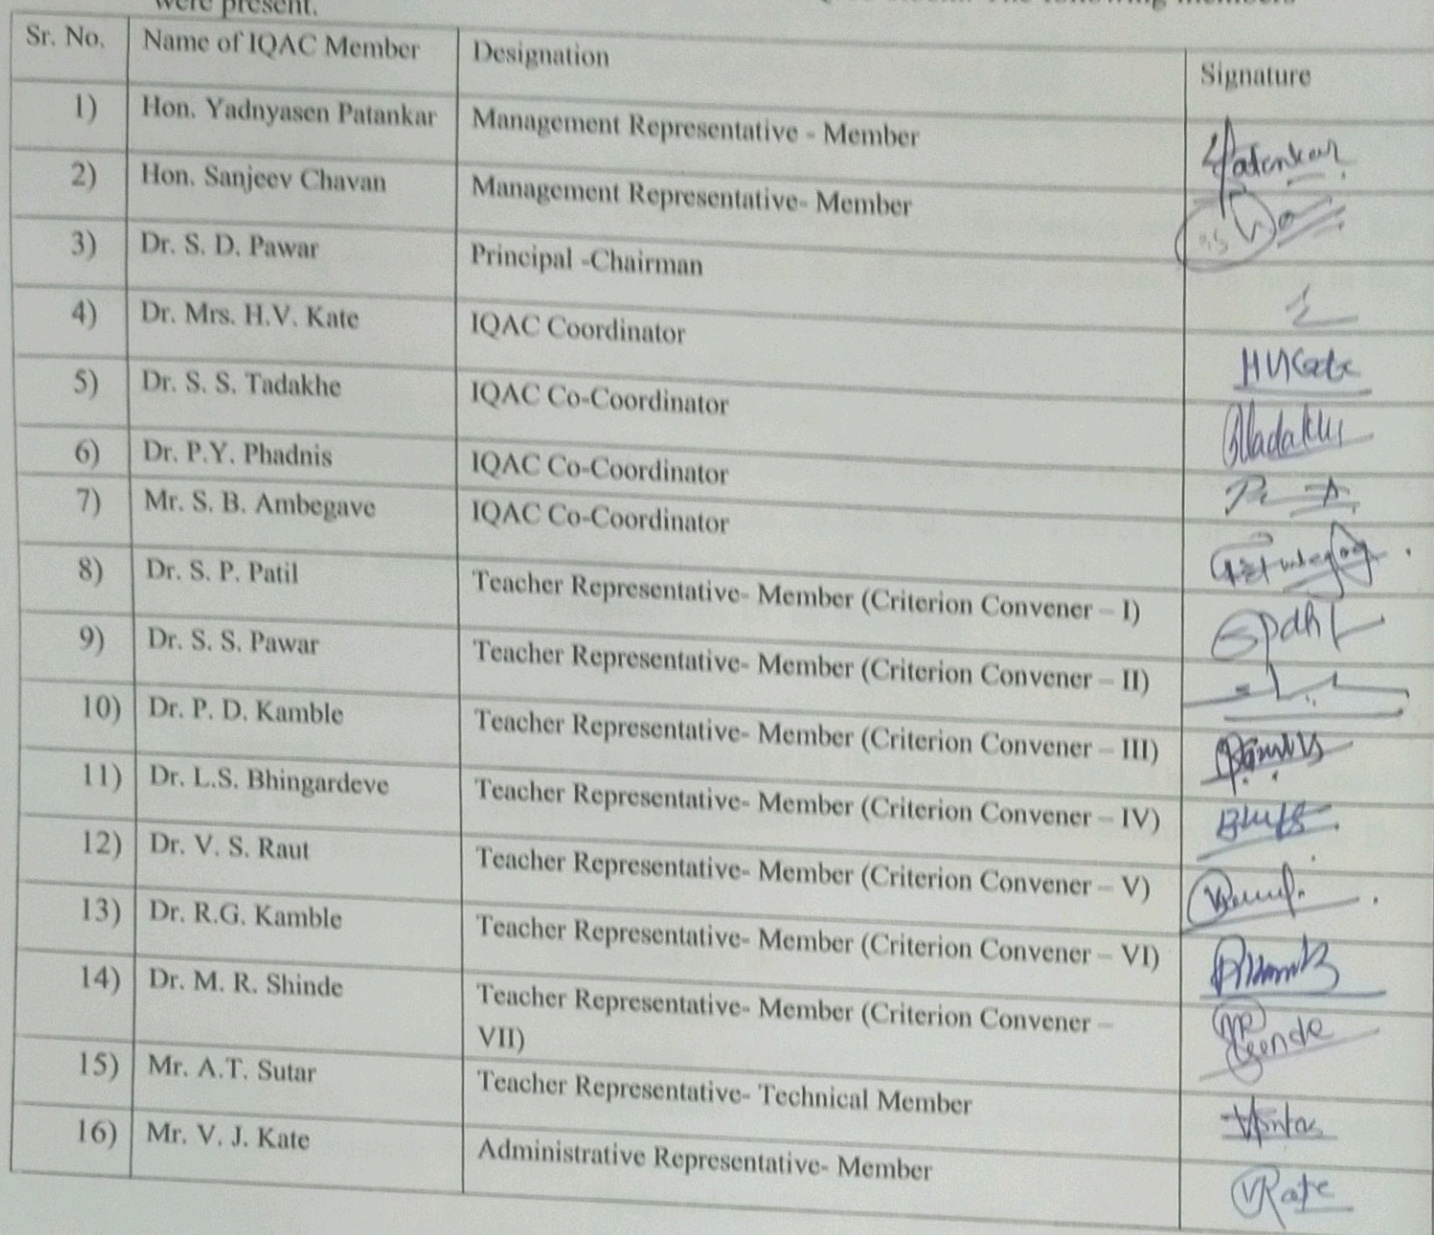 were present. The following members
Sr. No. Name of IQAC Member Designation Signature
1) Hon. Yadnyasen Patankar Management Representative - Member Patankar
2) Hon. Sanjeev Chavan Management Representative- Member
3) Dr. S. D. Pawar Principal -Chairman
4) Dr. Mrs. H.V. Kate IQAC Coordinator HVKate
5) Dr. S. S. Tadakhe IQAC Co-Coordinator
6) Dr. P.Y. Phadnis IQAC Co-Coordinator
7) Mr. S. B. Ambegave IQAC Co-Coordinator
8) Dr. S. P. Patil Teacher Representative- Member (Criterion Convener – I)
9) Dr. S. S. Pawar Teacher Representative- Member (Criterion Convener – II)
10) Dr. P. D. Kamble Teacher Representative- Member (Criterion Convener – III)
11) Dr. L.S. Bhingardeve Teacher Representative- Member (Criterion Convener – IV)
12) Dr. V. S. Raut Teacher Representative- Member (Criterion Convener – V)
13) Dr. R.G. Kamble Teacher Representative- Member (Criterion Convener – VI)
14) Dr. M. R. Shinde Teacher Representative- Member (Criterion Convener –
VII)
15) Mr. A.T. Sutar Teacher Representative- Technical Member
16) Mr. V. J. Kate Administrative Representative- Member VKate